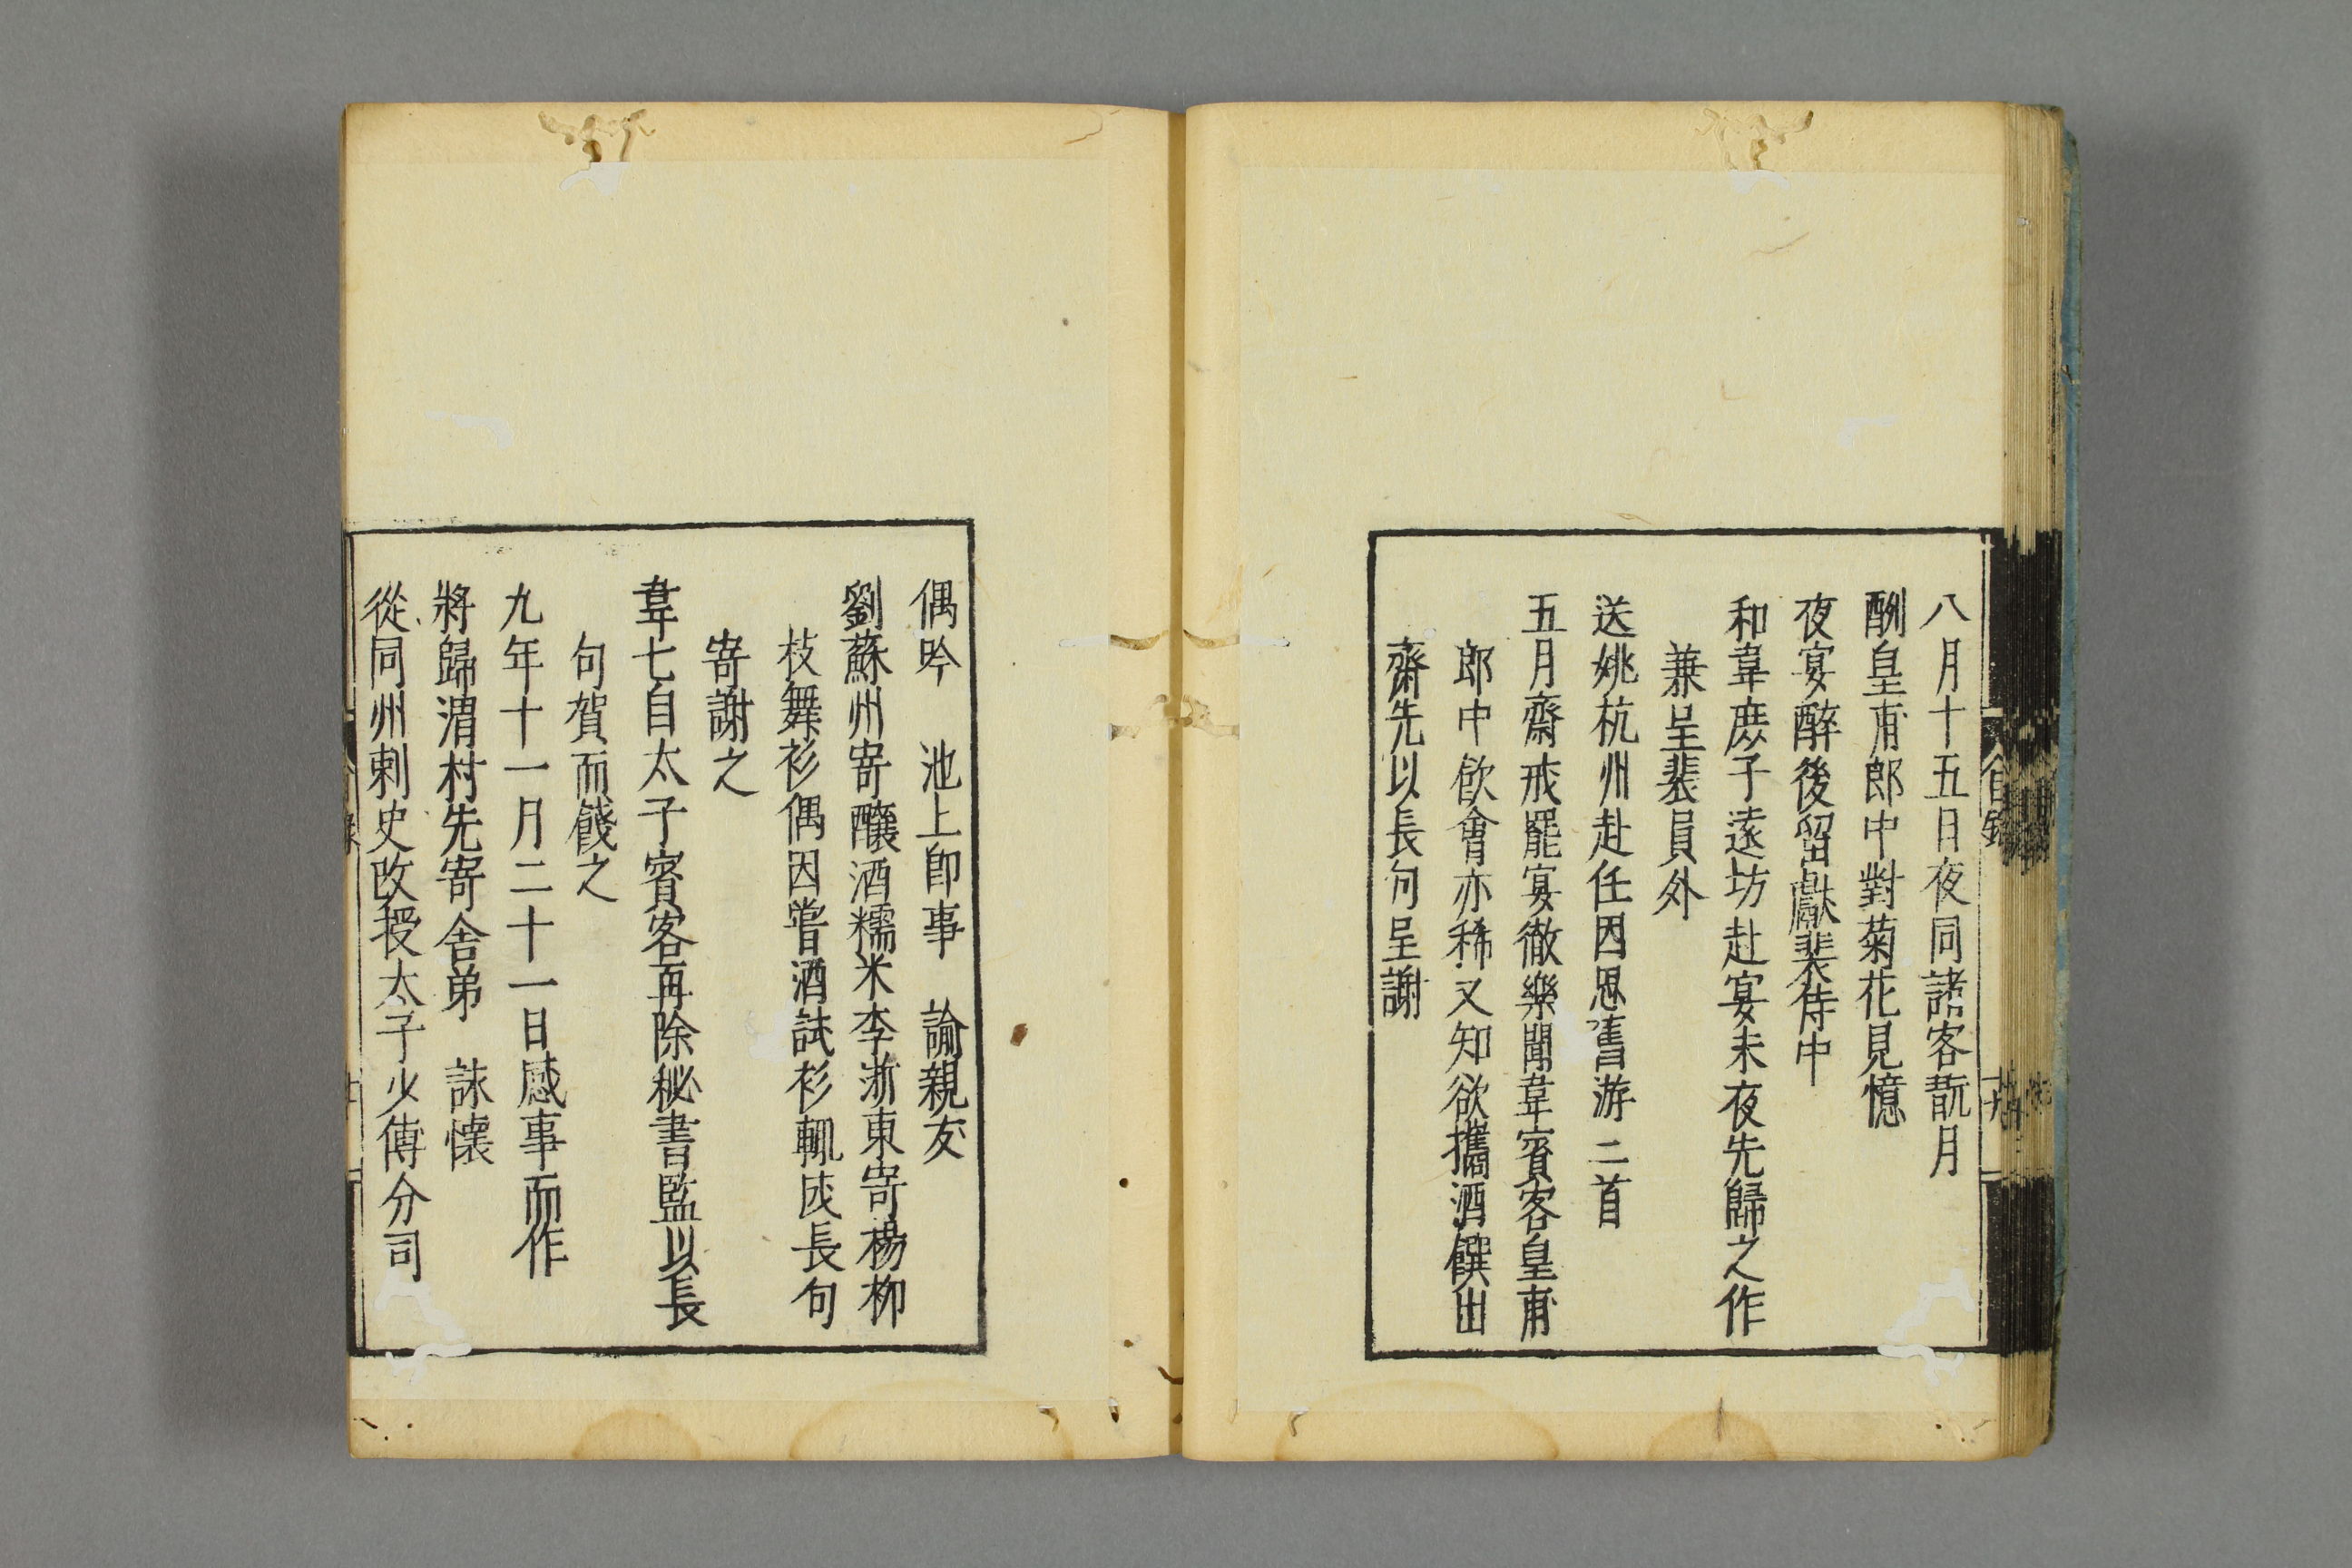 八月十五日夜同諸客翫月
酬皇甫郎中對菊花見憶
夜宴醉後留獻裴侍中
和韋庶子遠坊赴宴未夜先歸之作
兼呈裴員外
送姚杭州赴任因思舊游二首
五月齋戒罷宴徹樂聞韋賓客皇甫
郎中飲會亦稀又知欲攜酒饌出
齋先以長句呈謝
偶吟　池上即事　諭親友
劉蘇州寄釀酒糯米李浙東寄楊柳
枝舞衫偶因嘗酒試衫輒成長句
寄謝之
韋七自太子賓客再除秘書監以長
句賀而餞之
九年十一月二十一日感事而作
將歸渭村先寄舍弟　詠懷
從同州刺史改授太子少傅分司